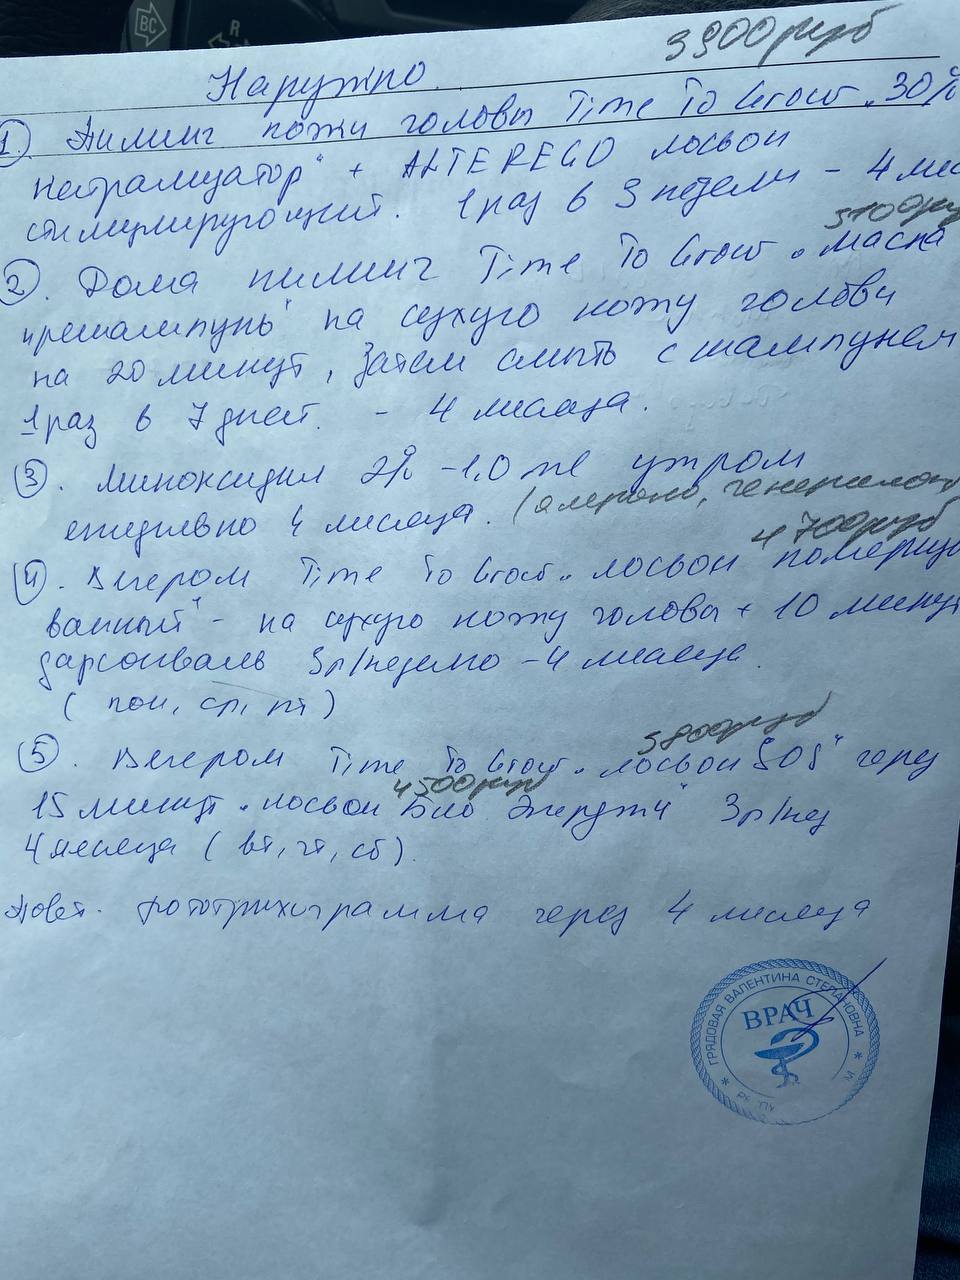 BC
R
3900 руб
Наружно.
1. Пилинг кожи головы Time To Grow „30%
Нейтрализатор" + ALTEREGO лосьон
стимулирующий. 1 раз в 3 недели - 4 мес
3100 ру
2. Дома пилинг Time To Grow „маска
прешампунь" на сухую кожу головы
на 20 минут, затем смыть с шампунем
1 раз в 7 дней. - 4 месяца.
3. Миноксидил 2% -1,0 мл утром
ежедневно 4 месяца. (алерана, генеролон
4700 руб
4. Вечером Time To Grow „лосьон полимеризо
ванный" - на сухую кожу головы + 10 минут
дарсонваль 3р/неделю - 4 месяца.
(пон, ср, пт)
3800 руб
5. Вечером Time To Grow „лосьон SOS" через
4500 руб
15 минут „лосьон Био Энерджи" 3р/нед
4 месяца (вт, чт, сб).
Повт. фототрихограмма через 4 месяца
ГРЯДОВАЯ ВАЛЕНТИНА СТЕПАНОВНА
ВРАЧ